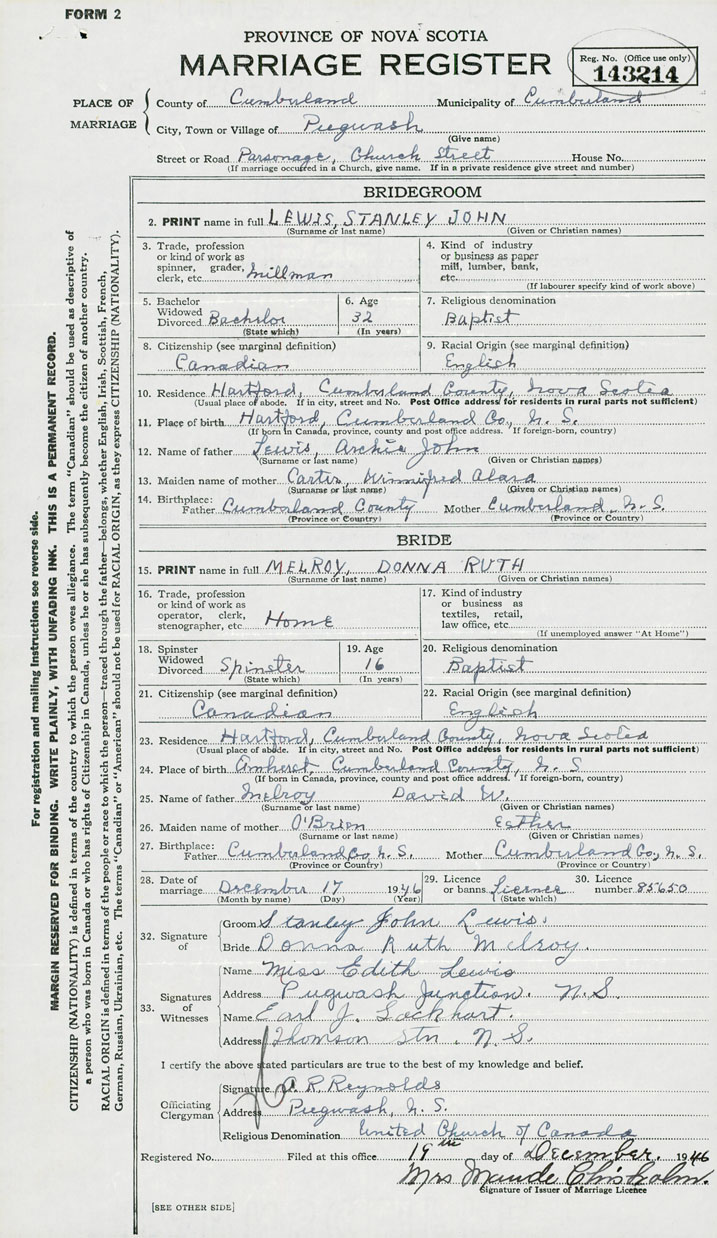 FORM 2
PROVINCE OF NOVA SCOTIA
MARRIAGE REGISTER
Reg. No. (Office use only)
143214
PLACE OF MARRIAGE
County of Cumberland Municipality of Cumberland
City, Town or Village of Pugwash
(Give name)
Street or Road Parsonage, Church Street House No.
(If marriage occurred in a Church, give name. If in a private residence give street and number)
BRIDEGROOM
2. PRINT name in full LEWIS, STANLEY JOHN
(Surname or last name) (Given or Christian names)
3. Trade, profession or kind of work as spinner, grader, clerk, etc. Millman
4. Kind of industry or business as paper mill, lumber, bank, etc.
(If labourer specify kind of work above)
5. Bachelor Widowed Divorced Bachelor
(State which)
6. Age 32
(In years)
7. Religious denomination
Baptist
8. Citizenship (see marginal definition)
Canadian
9. Racial Origin (see marginal definition)
English
10. Residence Hartford, Cumberland County, Nova Scotia
(Usual place of abode. If in city, street and No. Post Office address for residents in rural parts not sufficient)
11. Place of birth Hartford, Cumberland Co., N. S.
(If born in Canada, province, county and post office address. If foreign-born, country)
12. Name of father Lewis, Archie John
(Surname or last name) (Given or Christian names)
13. Maiden name of mother Carter, Winnifred
(Surname or last name) (Given or Christian names)
14. Birthplace: Father Cumberland County Mother Cumberland, N. S.
(Province or Country) (Province or Country)
BRIDE
15. PRINT name in full MELROY, DONNA RUTH
(Surname or last name) (Given or Christian names)
16. Trade, profession or kind of work as operator, clerk, stenographer, etc. Home
17. Kind of industry or business as textiles, retail, law office, etc.
(If unemployed answer "At Home")
18. Spinster Widowed Divorced Spinster
(State which)
19. Age 16
(In years)
20. Religious denomination
Baptist
21. Citizenship (see marginal definition)
Canadian
22. Racial Origin (see marginal definition)
English
23. Residence Hartford, Cumberland County, Nova Scotia
(Usual place of abode. If in city, street and No. Post Office address for residents in rural parts not sufficient)
24. Place of birth Amherst, Cumberland County, N. S
(If born in Canada, province, county and post office address. If foreign-born, country)
25. Name of father Melroy David W.
(Surname or last name) (Given or Christian names)
26. Maiden name of mother O'Brien Esther
(Surname or last name) (Given or Christian names)
27. Birthplace: Father Cumberland Co, N. S. Mother Cumberland Co., N. S.
(Province or Country) (Province or Country)
28. Date of marriage December 17 1946
(Month by name) (Day) (Year)
29. Licence or banns License
(State which)
30. Licence number 85650
32. Signature of
Groom Stanley John Lewis.
Bride Donna Ruth Mclroy.
33. Signatures of Witnesses
Name Miss Edith Lewis
Address Pugwash Junction. N.S.
Name Earl J. Lockhart.
Address Thomson Stn. N. S.
I certify the above stated particulars are true to the best of my knowledge and belief.
Officiating Clergyman
Signature A. R. Reynolds
Address Pugwash, N. S.
Religious Denomination United Church of Canada
Registered No. Filed at this office 19th day of December. 1946
Mrs Maude Chisholm.
Signature of Issuer of Marriage Licence
[SEE OTHER SIDE]
For registration and mailing instructions see reverse side.
MARGIN RESERVED FOR BINDING. WRITE PLAINLY, WITH UNFADING INK. THIS IS A PERMANENT RECORD.
CITIZENSHIP (NATIONALITY) is defined in terms of the country to which the person owes allegiance. The term "Canadian" should be used as descriptive of
a person who was born in Canada or who has rights of Citizenship in Canada, unless he or she has subsequently become the citizen of another country.
RACIAL ORIGIN is defined in terms of the people or race to which the person—traced through the father—belongs, whether English, Irish, Scottish, French,
German, Russian, Ukrainian, etc. The terms "Canadian" or "American" should not be used for RACIAL ORIGIN, as they express CITIZENSHIP (NATIONALITY).